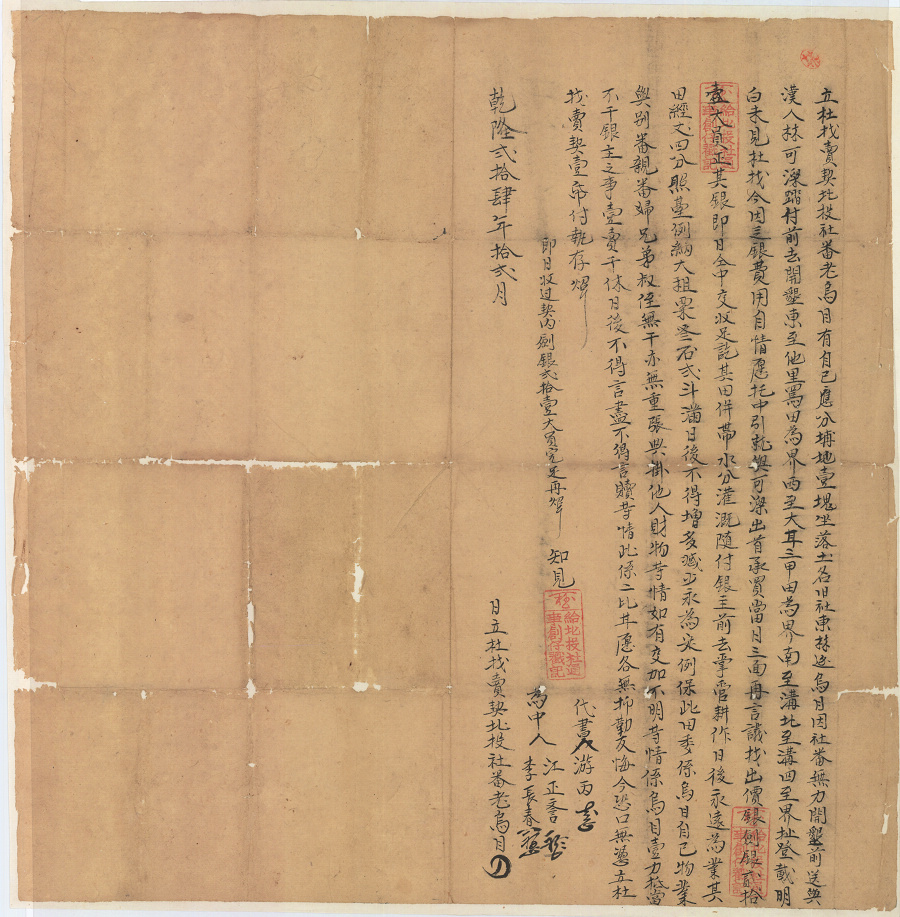 立杜找賣契北投社番老烏目有自己應分埔地壹塊坐落土名旧社東勢边烏目因社番無力開墾前送與
漢人林可深踏付前去開墾東至他里罵田為界西至大耳三甲田為界南至溝北至溝四至界址登載明
白未見杜找今因乏銀費用自情愿托中引就與可深出首承買當日三面再言議找出價銀劍銀貳拾
壹大員正其銀即日仝中交收足訖其田併帶水分灌溉隨付銀主前去掌管耕作日後永遠為業其
田經丈四分照臺例納大租粟叁石弍斗滿日後不得增多減少永為定例保此田委係烏目自己物業
與別番親番婦兄弟叔侄無干亦無重張典掛他人財物等情如有交加不明等情係烏目壹力抵當
不干銀主之事壹賣千休日後不得言盡不得言贖等情此係二比甘愿各無抑勒反悔今恐口無憑立杜
找賣契壹帋付執存炤
即日收过契內劍銀弍拾壹大員完足再炤
知見
給北投社
代書人游丙
為中人江正
李長春
乾隆弍拾肆年拾弍月 日立杜找賣契北投社番老烏目